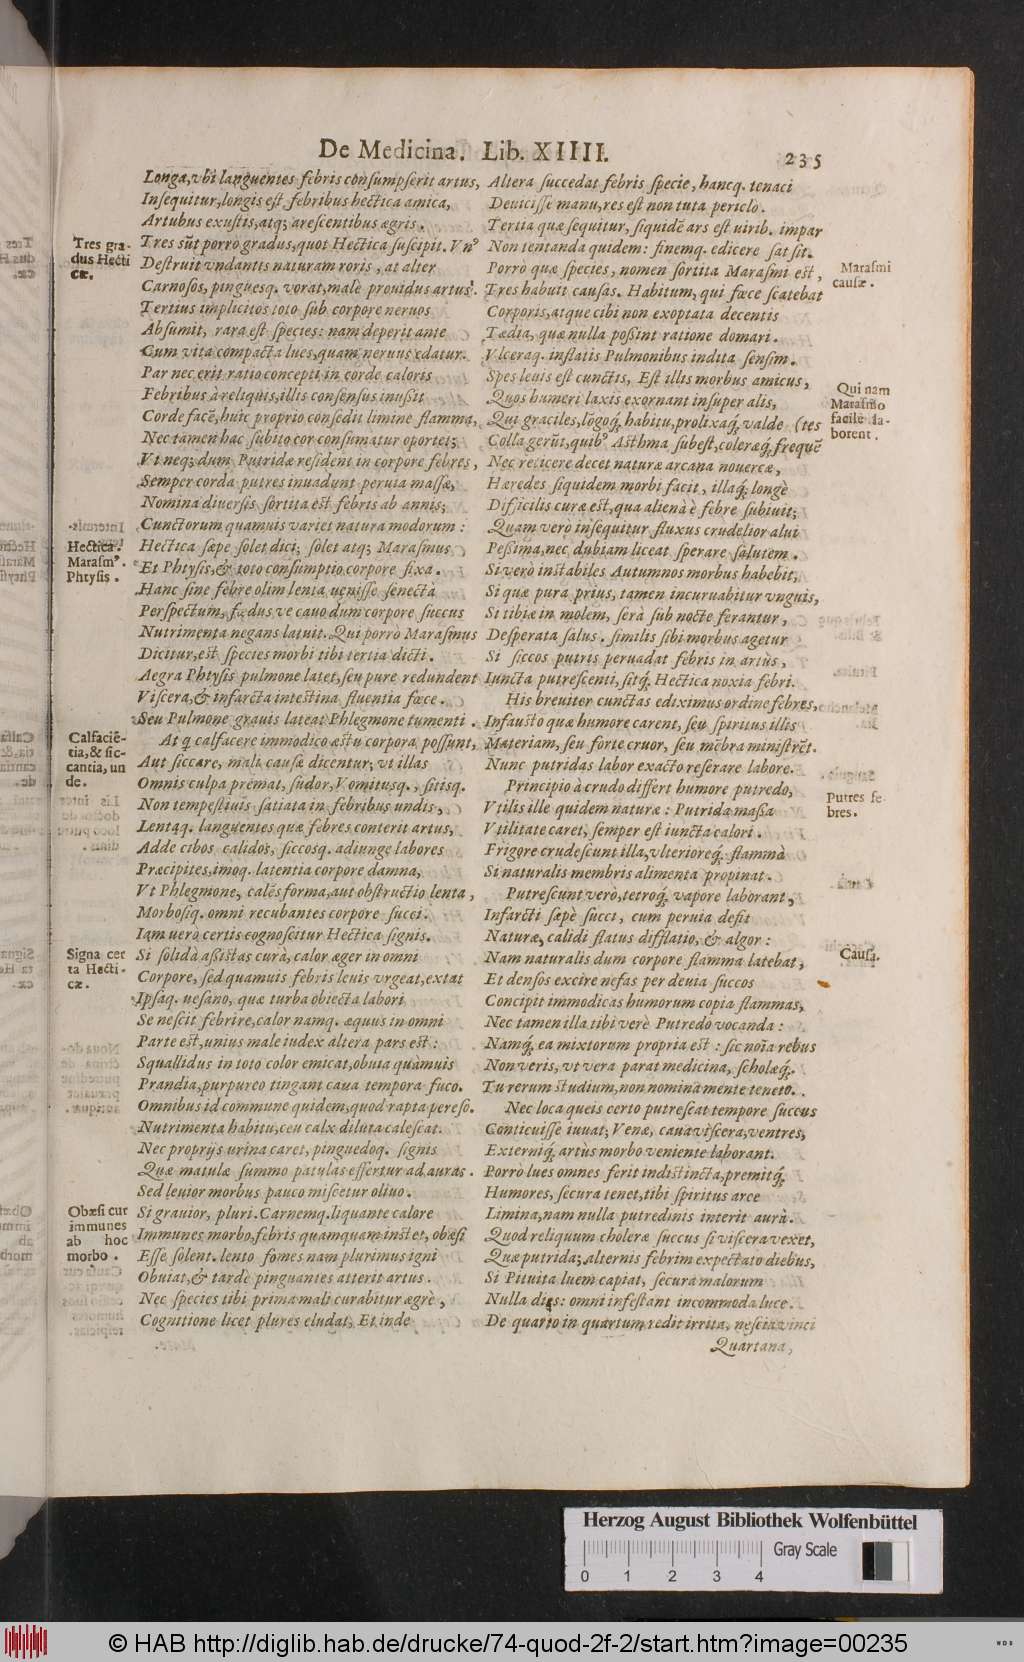 De Medicina. Lib. XIIII.
235
Longa, vbi languentes febris consumpserit artus,
Insequitur, longis est febribus hectica amica,
Artubus exustis, atq; arescentibus ægris.
Tres sũt porrò gradus, quot Hectica suscipit. Vnꝰ
Destruit vndantis naturam roris, at alter
Carnosos, pinguesq. vorat, malè prouidus artus.
Tertius implicitos toto sub corpore neruos
Absumit, rara est species: nam deperit ante
Cum vita compacta lues, quam neruus edatur.
Par nec erit ratio concepti in corde caloris
Febribus à reliquis, illis consensus inussit
Corde facẽ, huic proprio consedit limine flamma,
Nec tamen hac subito cor consumatur oportet;
Vt neq; dum Putridæ resident in corpore febres,
Semper corda putres inuadunt peruia massæ,
Nomina diuersis sortita est febris ab annis;
Cunctorum quamuis variet natura modorum:
Hectica sæpe solet dici; solet atq; Marasmus
Et Phtysis, & toto consumptio corpore fixa.
Hanc sine febre olim lenta uenisse senecta
Perspectum, fœdus ve cauo dum corpore succus
Nutrimenta negans latuit. Qui porrò Marasmus
Dicitur, est species morbi tibi tertia dicti.
Aegra Phtysis pulmone latet, seu pure redundent
Viscera, & infarcta intestina fluentia fœce.
Seu Pulmone grauis lateat Phlegmone tumenti.
At q calfacere immodico æstu corpora possunt,
Aut siccare, mali causæ dicentur; vt illas
Omnis culpa premat, sudor, Vomitusq., sitisq.
Non tempestiuis satiata in febribus undis,
Lentaq. languentes quæ febres conterit artus,
Adde cibos calidos, siccosq. adiunge labores
Præcipites, imoq. latentia corpore damna,
Vt Phlegmone, calẽs forma, aut obstructio lenta,
Morbosiq. omni recubantes corpore succi.
Iam uerò certis cognoscitur Hectica signis.
Si solidà assistas curà, calor æger in omni
Corpore, sed quamuis febris leuis vrgeat, extat
Ipsaq. uesano, quæ turba obiecta labori
Se nescit febrire, calor namq. æquus in omni
Parte est, unius male iudex altera pars est:
Squallidus in toto color emicat, obuia quàmuis
Prandia, purpureo tingant caua tempora fuco.
Omnibus id commune quidem, quod rapta peresо.
Nutrimenta habitu, ceu calx diluta calescat.
Nec proprijs urina caret, pinguedoq. signis
Quæ matulæ summo patulas effertur ad auras.
Sed leuior morbus pauco miscetur oliuo.
Si grauior, pluri. Carnemq. liquante calore
Immunes morbo, febris quamquam instet, obæsi
Esse solent. lento fomes nam plurimus igni
Obuiat, & tardè pinguantes atterit artus.
Nec species tibi prima mali curabitur ægrè,
Cognitione licet plures eludat, Et inde
Tres gra-
dus Hecti
cæ.
Hectica.
Marasmꝰ.
Phtysis.
Calfaciẽ-
tia, & sic-
cantia, un
de.
Signa cer
ta Hecti-
cæ.
Obæsi cur
immunes
ab hoc
morbo.
Altera succedat febris specie, hancq. tenaci
Deuicisse manu, res est non tuta periclo.
Tertia quæ sequitur, siquidẽ ars est uirib. impar
Non tentanda quidem: finemq. edicere sat sit.
Porrò quæ species, nomen sortita Marasmi est,
Tres habuit causas. Habitum, qui fœce scatebat
Corporis, atque cibi non exoptata decentis
Tædia, quæ nulla possint ratione domari.
Vlceraq. inflatis Pulmonibus indita sensim.
Spes leuis est cunctis, Est illis morbus amicus,
Quos humeri laxis exornant insuper alis,
Qui graciles, lõgoq́, habitu, prolixaq́, valde (tes
Colla gerũt, quibꝰ Asthma subest, coleræq́, frequẽ
Nec reticere decet naturæ arcana nouercæ,
Hæredes siquidem morbi facit, illaq́; longè
Difficilis curæ est, qua alienà è febre subiuit;
Quam verò insequitur fluxus crudelior alui
Pessima, nec dubiam liceat sperare salutem.
Si verò instabiles Autumnos morbus habebit,
Si quæ pura prius, tamen incuruabitur vnguis,
Si tibiæ in molem, serà sub nocte ferantur,
Desperata salus. similis sibi morbus agetur
Si siccos putris peruadat febris in artùs,
Iuncta putrescenti, sitq́; Hectica noxia febri.
His breuiter cunctas ediximus ordine febres,
Infausto quæ humore carent, seu spiritus illis
Materiam, seu forte cruor, seu mẽbra ministrẽt.
Nunc putridas labor exacto reserare labore.
Principio à crudo differt humore putredo,
Vtilis ille quidem naturæ: Putrida massa
Vtilitate caret, semper est iuncta calori.
Frigore crudescunt illa, vlterioreq́; flammà
Si naturalis membris alimenta propinat.
Putrescunt verò, tetroq́; vapore laborant,
Infarcti sæpè succi, cum peruia desit
Naturæ, calidi flatus difflatio, & algor:
Nam naturalis dum corpore flamma latebat,
Et densos excire nefas per deuia succos
Concipit immodicas humorum copia flammas,
Nec tamen illa tibi verè Putredo vocanda:
Namq́; ea mixtorum propria est: sic noĩa rebus
Non veris, ut vera parat medicina, scholæq́;.
Tu rerum studium, non nomina mente teneto.
Nec loca queis certo putrescat tempore succus
Conticuisse iuuat; Venæ, caua viscera, ventres,
Externiq́; artùs morbo veniente laborant.
Porrò lues omnes ferit indistincta, premitq́;
Humores, secura tenet, tibi spiritus arce
Limina, nam nulla putredinis interit aurà.
Quod reliquum choleræ succus si viscera vexet,
Quæ putrida; alternis febrim expectato diebus,
Si Pituita luem capiat, secura malorum
Nulla dies: omni infestant incommoda luce.
De quarto in quartum redit irrita, nescia vinci
Quartana,
Marasmi
causæ.
Qui nam
Marasmo
facile la-
borent.
Putres fe-
bres.
Causa.
Herzog August Bibliothek Wolfenbüttel
Gray Scale
0 1 2 3 4
© HAB http://diglib.hab.de/drucke/74-quod-2f-2/start.htm?image=00235